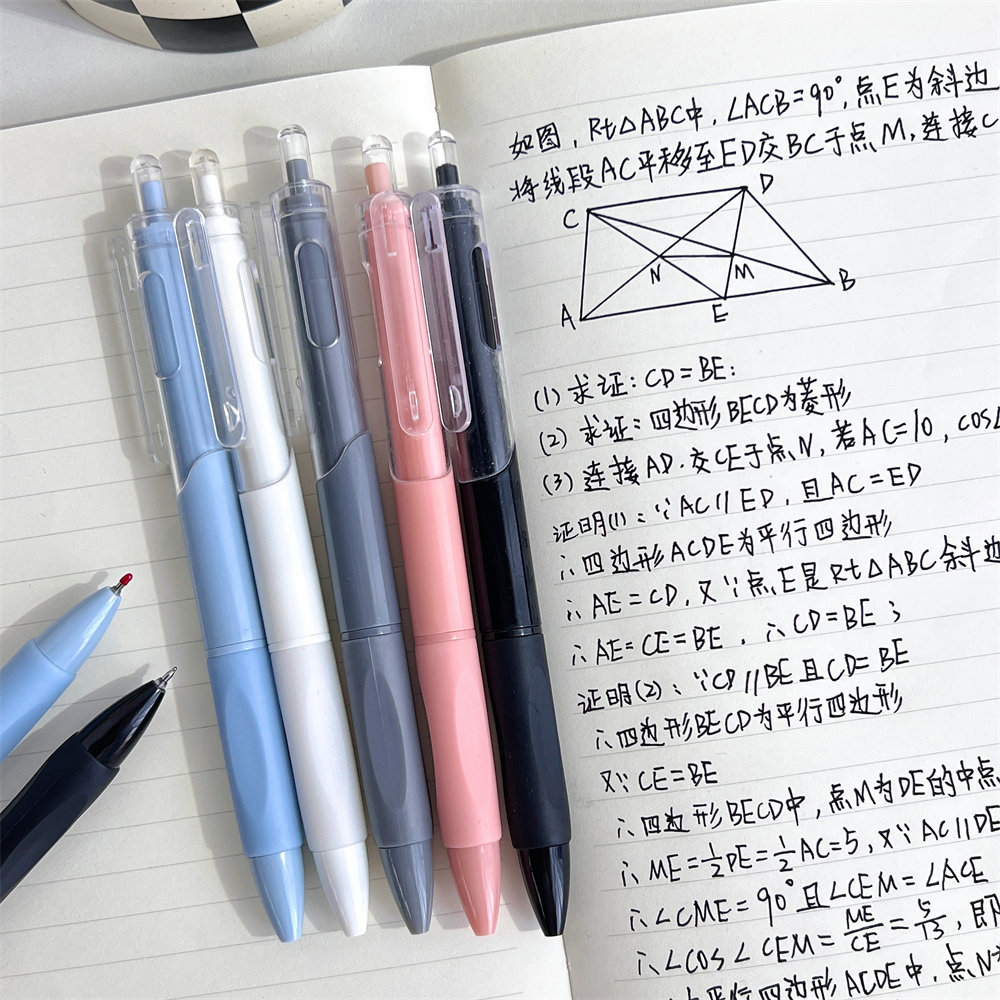 如图,Rt△ABC中,∠ACB=90°,点E为斜边
将线段AC平移至ED交BC于点M,连接C
C
D
N
M
B
A
E
(1)求证:CD=BE:
(2)求证:四边形BECD为菱形
(3)连接AD.交CE于点N,若AC=10,cos∠
证明(1):∵AC∥ED,且AC=ED
∴四边形ACDE为平行四边形
∴AE=CD,又∵点E是Rt△ABC斜边
∴AE=CE=BE.∴CD=BE;
证明(2):∵CD∥BE且CD=BE
∴四边形BECD为平行四边形
又∵CE=BE
∴四边形BECD中,点M为DE的中点
∴ME=1/2DE=1/2AC=5,又∵AC∥DE
∴∠CME=90°且∠CEM=∠ACE
∴∠COS∠CEM=ME/CE=5/13,即
平行四边形ACDE中,点N为